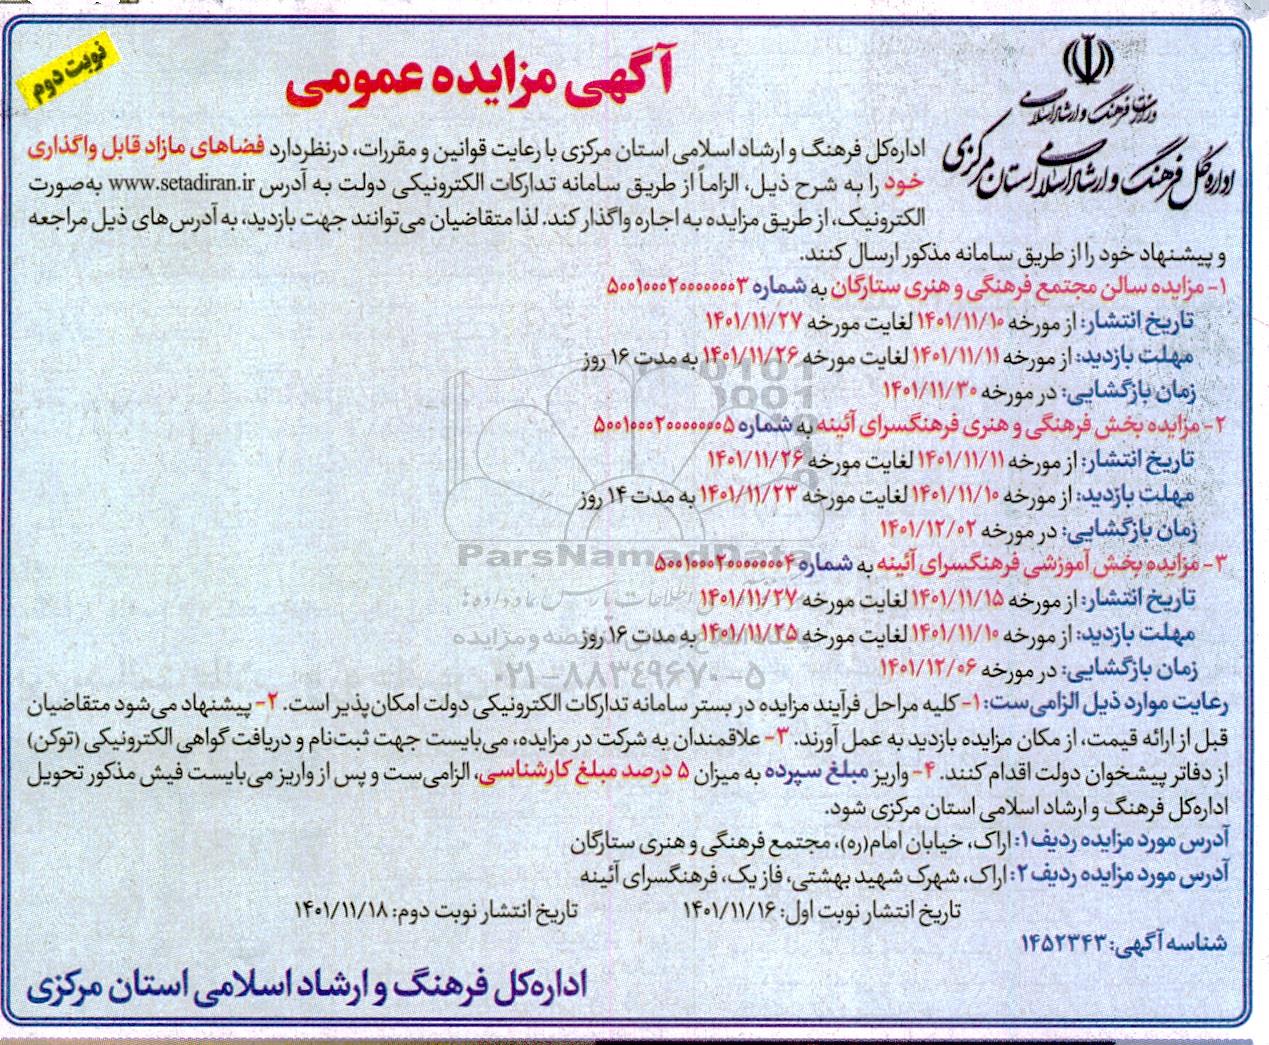 نوبت دوم
آگهی مزایده عمومی
وزارت فرهنگ و ارشاد اسلامی
اداره کل فرهنگ و ارشاد اسلامی استان مرکزی
اداره‌کل فرهنگ و ارشاد اسلامی استان مرکزی با رعایت قوانین و مقررات، درنظر دارد فضاهای مازاد قابل واگذاری
خود را به شرح ذیل، الزاماً از طریق سامانه تدارکات الکترونیکی دولت به آدرس www.setadiran.ir به‌صورت
الکترونیک، از طریق مزایده به اجاره واگذار کند. لذا متقاضیان می‌توانند جهت بازدید، به آدرس‌های ذیل مراجعه
و پیشنهاد خود را از طریق سامانه مذکور ارسال کنند.
۱- مزایده سالن مجتمع فرهنگی و هنری ستارگان به شماره ۵۰۰۱۰۰۰۲۰۰۰۰۰۰۰۳
تاریخ انتشار: از مورخه ۱۴۰۱/۱۱/۱۰ لغایت مورخه ۱۴۰۱/۱۱/۲۷
مهلت بازدید: از مورخه ۱۴۰۱/۱۱/۱۱ لغایت مورخه ۱۴۰۱/۱۱/۲۶ به مدت ۱۶ روز
زمان بازگشایی: در مورخه ۱۴۰۱/۱۱/۳۰
۲- مزایده بخش فرهنگی و هنری فرهنگسرای آئینه به شماره ۵۰۰۱۰۰۰۲۰۰۰۰۰۰۰۵
تاریخ انتشار: از مورخه ۱۴۰۱/۱۱/۱۱ لغایت مورخه ۱۴۰۱/۱۱/۲۶
مهلت بازدید: از مورخه ۱۴۰۱/۱۱/۱۰ لغایت مورخه ۱۴۰۱/۱۱/۲۳ به مدت ۱۴ روز
زمان بازگشایی: در مورخه ۱۴۰۱/۱۲/۰۲
ParsNamadData
۳- مزایده بخش آموزشی فرهنگسرای آئینه به شماره ۵۰۰۱۰۰۰۲۰۰۰۰۰۰۰۴
تاریخ انتشار: از مورخه ۱۴۰۱/۱۱/۱۵ لغایت مورخه ۱۴۰۱/۱۱/۲۷
مهلت بازدید: از مورخه ۱۴۰۱/۱۱/۱۰ لغایت مورخه ۱۴۰۱/۱۱/۲۵ به مدت ۱۶ روز
زمان بازگشایی: در مورخه ۱۴۰۱/۱۲/۰۶
۰۲۱-۸۸۳۴۹۶۷۰-۵
رعایت موارد ذیل الزامی‌ست: ۱- کلیه مراحل فرآیند مزایده در بستر سامانه تدارکات الکترونیکی دولت امکان‌پذیر است. ۲- پیشنهاد می‌شود متقاضیان
قبل از ارائه قیمت، از مکان مزایده بازدید به عمل آورند. ۳- علاقمندان به شرکت در مزایده، می‌بایست جهت ثبت‌نام و دریافت گواهی الکترونیکی (توکن)
از دفاتر پیشخوان دولت اقدام کنند. ۴- واریز مبلغ سپرده به میزان ۵ درصد مبلغ کارشناسی، الزامی‌ست و پس از واریز می‌بایست فیش مذکور تحویل
اداره‌کل فرهنگ و ارشاد اسلامی استان مرکزی شود.
آدرس مورد مزایده ردیف ۱: اراک، خیابان امام(ره)، مجتمع فرهنگی و هنری ستارگان
آدرس مورد مزایده ردیف ۲: اراک، شهرک شهید بهشتی، فاز یک، فرهنگسرای آئینه
تاریخ انتشار نوبت اول: ۱۴۰۱/۱۱/۱۶ تاریخ انتشار نوبت دوم: ۱۴۰۱/۱۱/۱۸
شناسه آگهی: ۱۴۵۲۳۴۳
اداره‌کل فرهنگ و ارشاد اسلامی استان مرکزی